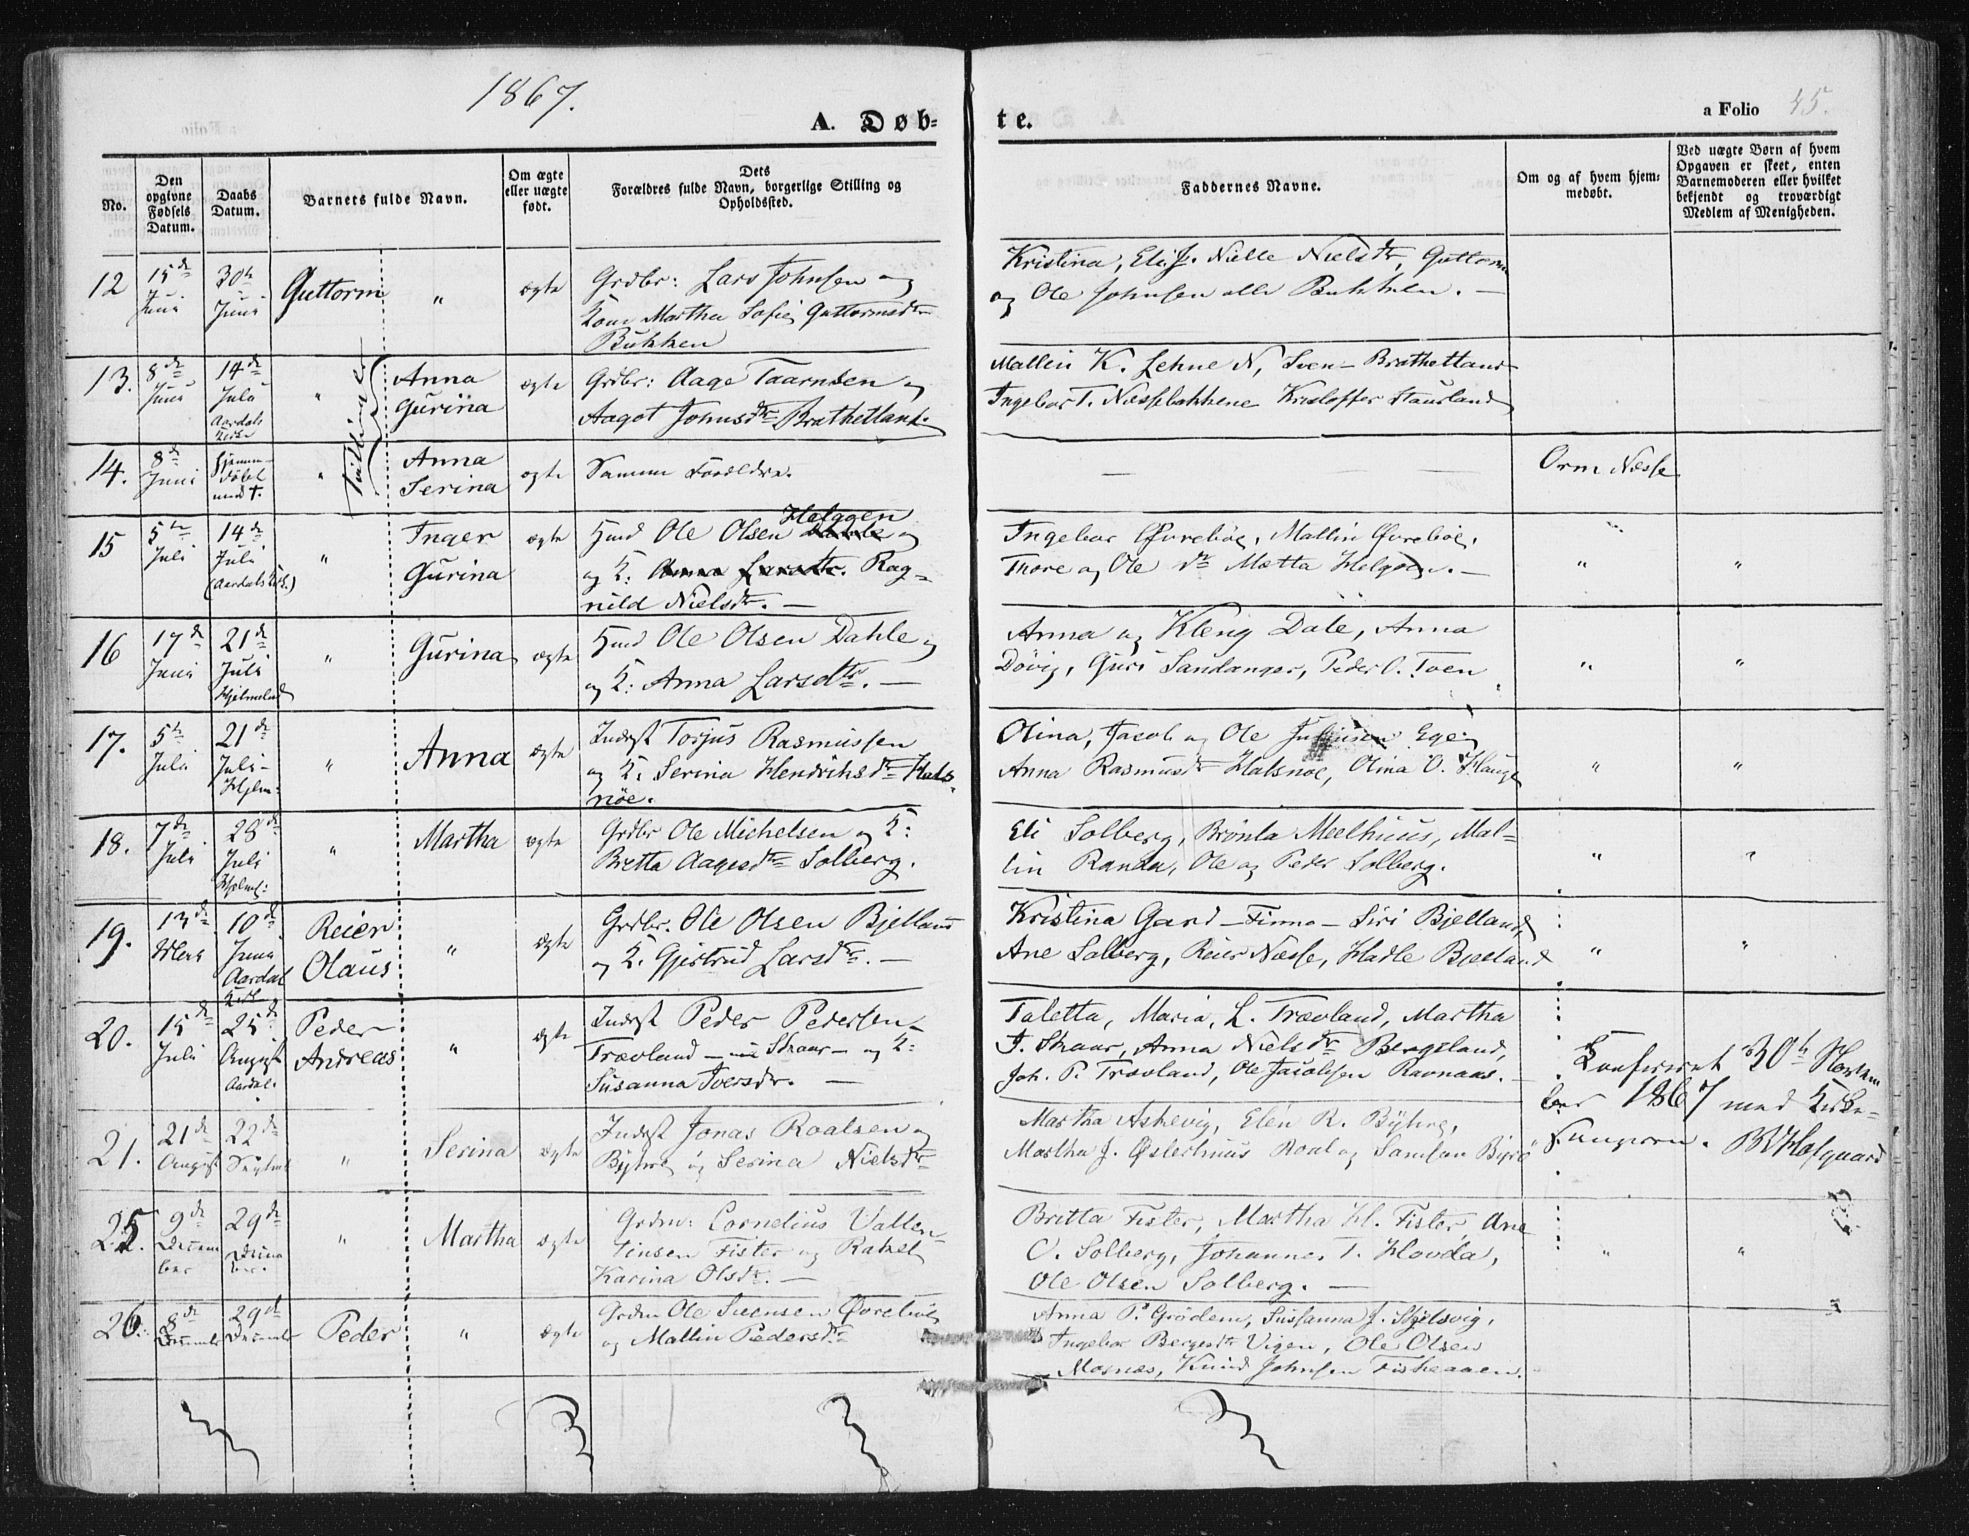 1867.
A. Døb-
te.
a Folio 45.
No.
Den
opgivne
Fødsels
Datum.
Daabs
Datum.
Barnets fulde Navn.
Om ægte
eller uægte
født.
Dets
Forældres fulde Navn, borgerlige Stilling og
Opholdssted.
Faddernes Navne.
Om og af hvem hjem-
medøbt.
Ved uægte Børn af hvem
Opgaven er skeet, enten
Barnemoderen eller hvilket
bekjendt og troværdigt
Medlem af Menigheden.
12
15de
Juni
30te
Juni
Guttorm
"
ægte
Grdbr: Lars Johnsen og
Kone Martha Sofie Guttormsdtr
Bukken
Kristina, Nille Nielsdtr, Guttorm
og Ole Johnsen alle Bukken. —
13.
8de
Juni
14de
Juli
Aardals
Kirke
"
Tvillinger
Anna
Gurina
ægte
Grdbr: Aage Taarnsen og
Aagot Johnsdtr Brathetland.
Mallin K. Lehne N, Sven Brathetland
Ingebor T. Næssebakkene Kristoffer Staurland
14.
8de
Juni
hjemme-
døbt
med †.
"
Anna
Serina
ægte
Samme Forældre.
—
—
Orm Næsse
15
5te
Juli
14de
Juli
(Aardals Kirk.)
"
Inger
Gurina
ægte
Huusmd Ole Olsen Dahle Helgøen og
og K: Anna Larsdtr. Rag-
nild Nielsdtr. —
Ingebor Øvrebøe, Mallin Øvrebøe,
Thore og Ole do Mætta Helgøen. —
"
"
16
17de
Juni
21de
Juli
Hjelmeland
"
Gurina
ægte
Huusmd Ole Olsen Dahle og
og K: Anna Larsdtr. —
Anna og Kleng Dale, Anna
Døvig, Guri Sandanger, Peder O. Tven
"
"
17.
5te
Juli
21de
Juli -
Hjelm:
"
Anna
ægte
Inderst Torjus Rasmussen
og K: Serina Hendrichsdtr Hals-
nöe.
Olina, Jacob og Ole Ege;
Anna Rasmusdtr Halsnoe, Olina O. Hauge
"
"
18.
7de
Juli
28de
Juli
Hjelml:
"
Martha
ægte
Grdbr Ole Michelsen og K:
Bretta Aagesdtr Solberg.
Eli Solberg, Brønla Meelhuus, Mal-
lin Randa, Ole og Peder Solberg.
"
"
19.
13de
Mai
10de
Juni
Aardal
Kirke
Reier
Olaus
"
ægte
Grdbr. Ole Olsen Bjelland
og K. Gjertrud Larsdtr. —
Kristina Gard - Finno - Siri Bjelland,
Ane Solberg, Reier Næsse, Hadle Bjelland
"
"
20.
15de
Juli
25de
August
Aardal.
Peder
Andreas
"
ægte
Inderst Peder Pedersen
Trævland — nu Skaar — og K:
Susanna Iversdtr. —
Taletta, Maria, L. Trævland, Martha
J. Skaar, Anna Nielsdtr Bergeland,
Joh. P. Trævland, Ole Jacobsen Ravnaas. —
Confereret 30te Novem
ber 1867 med Kirke-
sangeren. Hofgaard
21.
21de
August
22de
Septbr
"
Serina
ægte
Inderst Jonas Roalsen og
Byhre og Serina Nielsdtr
Martha Askevig, Elen R. Byhre,
Martha J. Østerhuus Roal og Samson Byre
25.
9de
Decem
ber
29de
Decem
ber.
"
Martha
ægte
Grdm: Cornelius Vallen-
tinsen Fister og Rakel
Karina Olsdtr. —
Britta Fister, Martha H. Fister, Ane
O. Solberg, Johannes T. Hovda,
Ole Olsen Solberg. —
"
"
26.
8de
Decembr
29de
Decembr
Peder
"
ægte
Grdm Ole Svensen Øvrebøe
og Mallin Pedersdtr
Anna P. Grödem, Sussanna J. Skjelsvig,
Ingebor Bergesdtr Vigen, Ole Olsen
Mosnæs, Knud Johnsen Fiskeaaen.